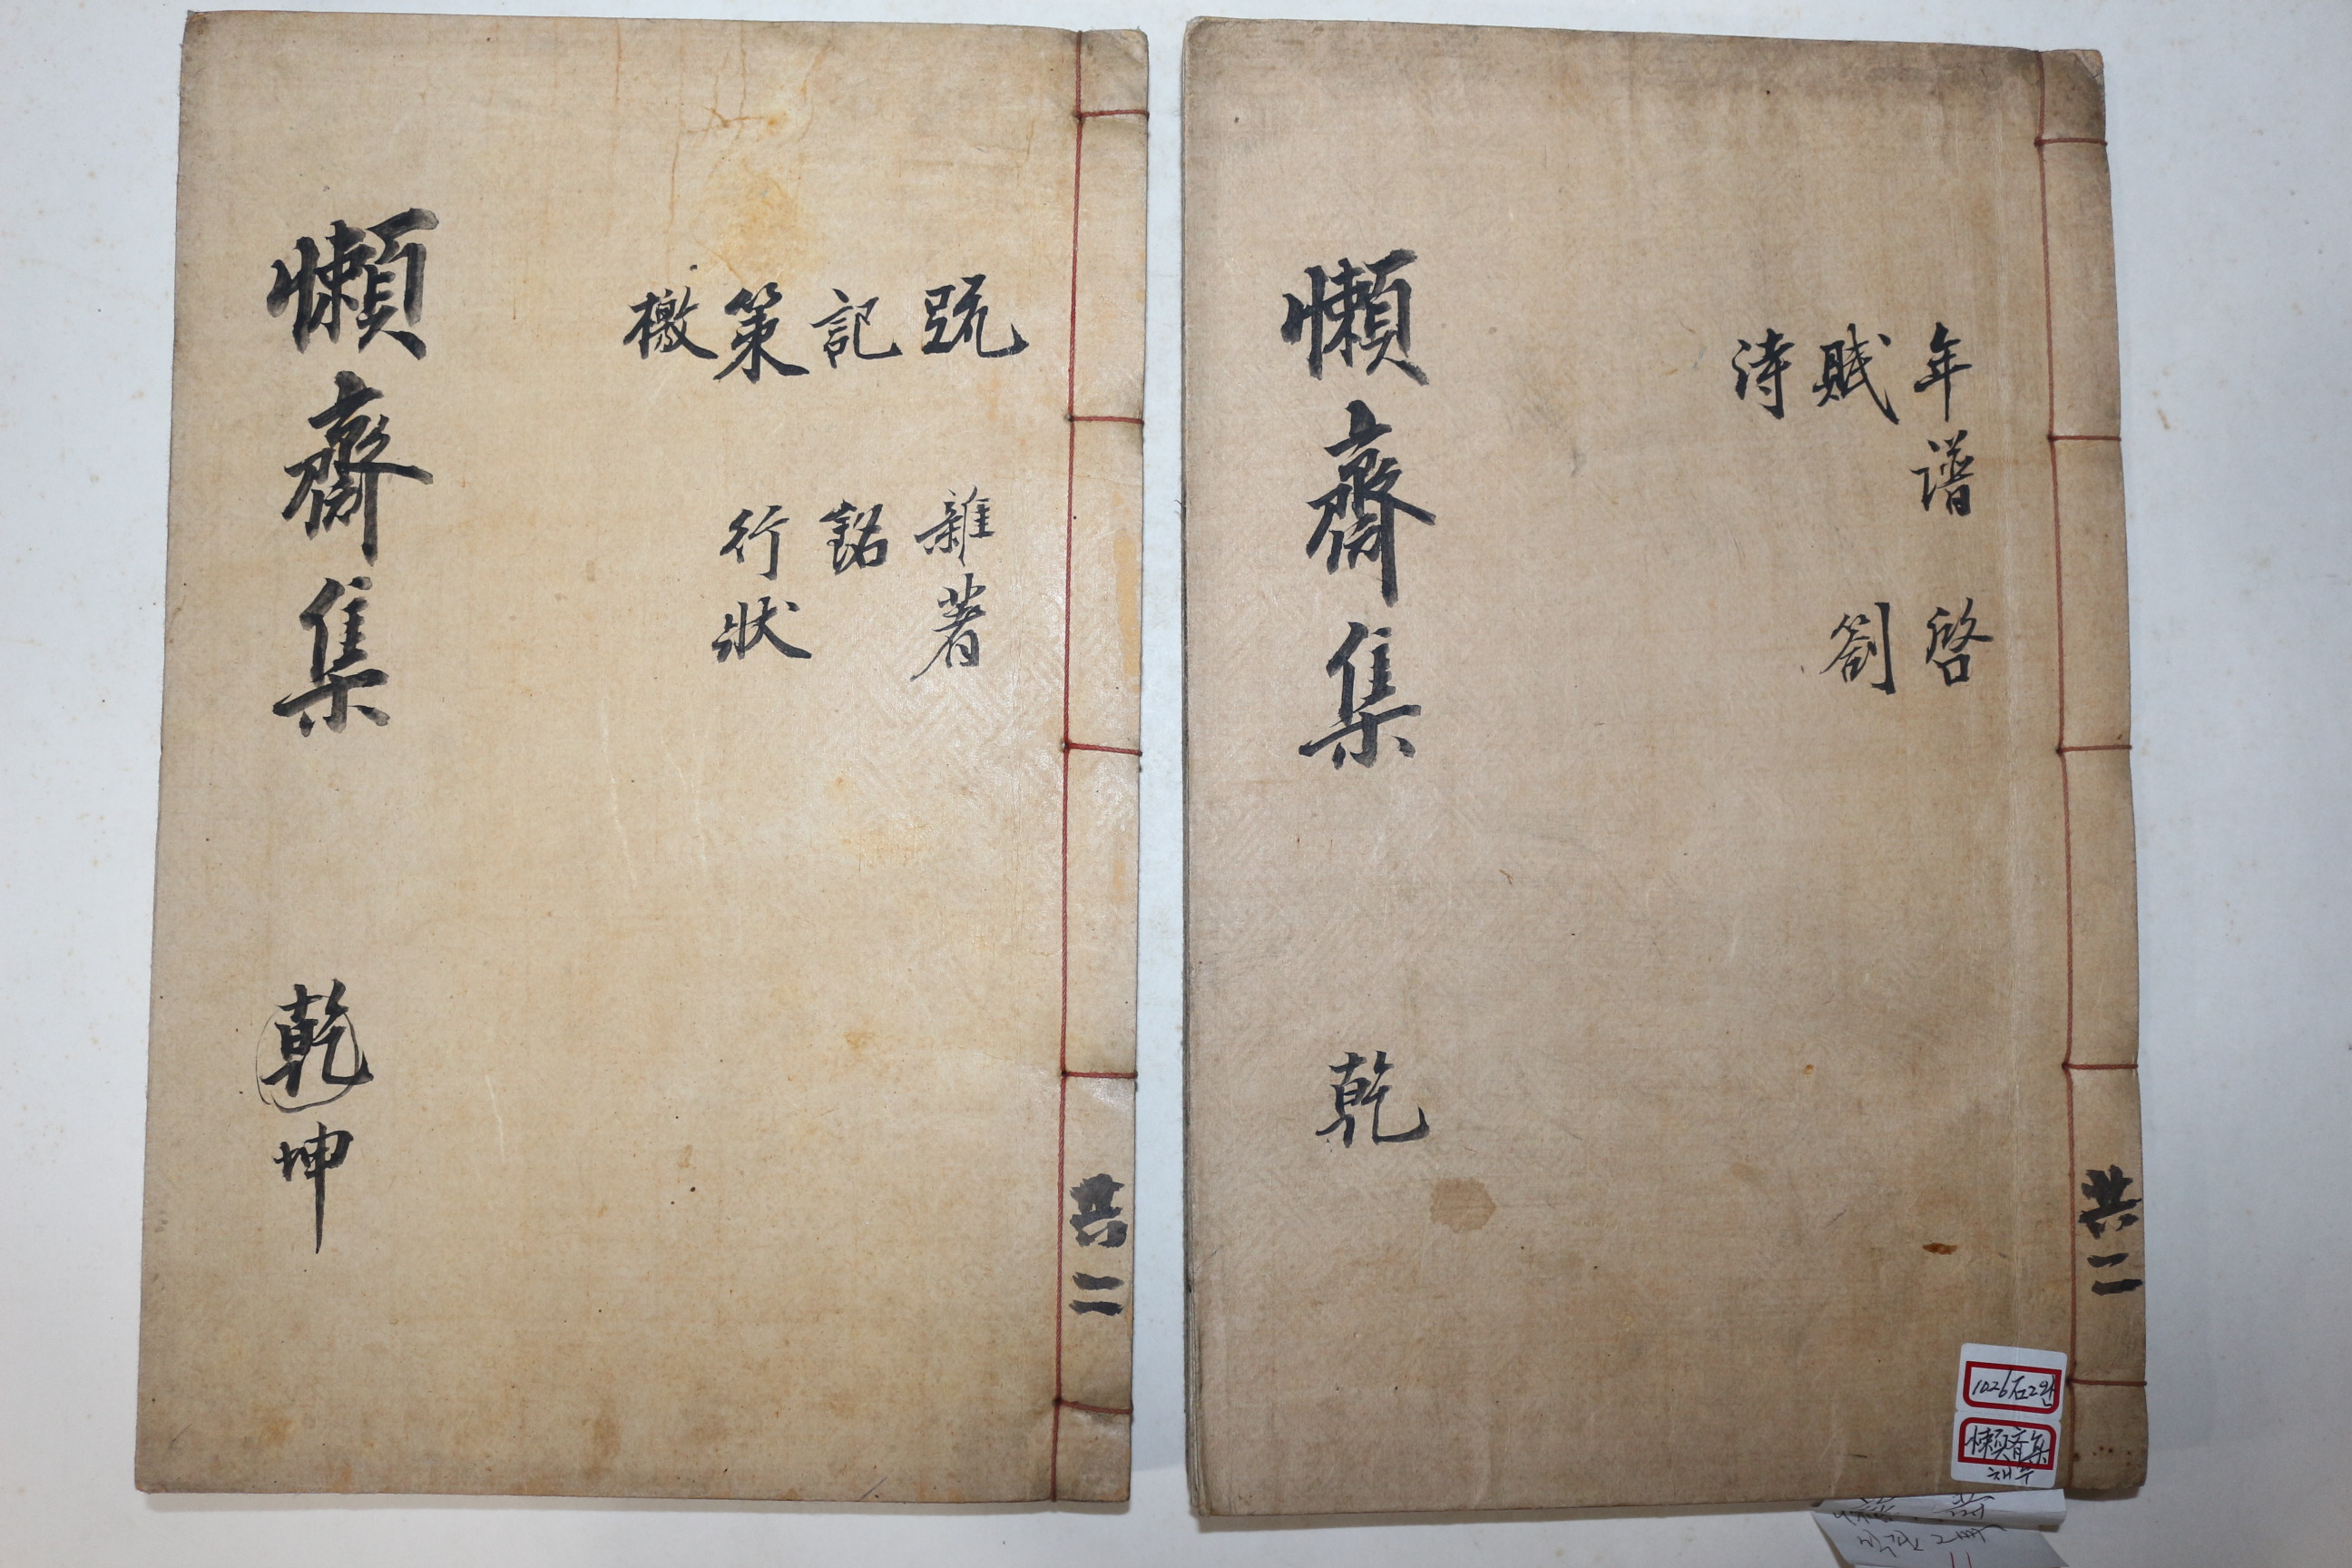 懶齋集
乾
坤
疏 雜著
記 銘
策 行狀
檄
共二
懶齋集
乾
年譜 啓
賦 劄
詩
共二
1026
懶齋集
채수